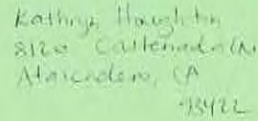 Kathryn Houghton
8120 Castenada Ln
Atascadero, CA
93422